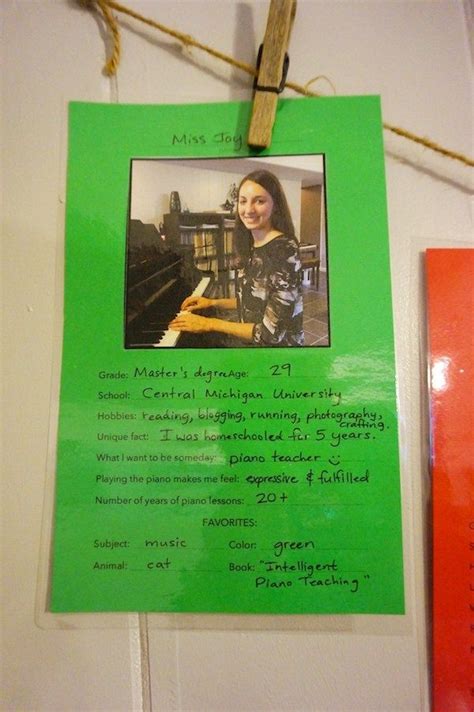 Miss Joy
Grade: Master's degree Age: 29
School: Central Michigan University
Hobbies: reading, blogging, running, photography,
crafting.
Unique fact: I was homeschooled for 5 years.
What I want to be someday: piano teacher ☺
Playing the piano makes me feel: expressive & fulfilled
Number of years of piano lessons: 20+
FAVORITES:
Subject: music Color: green
Animal: cat Book: "Intelligent
Piano Teaching"